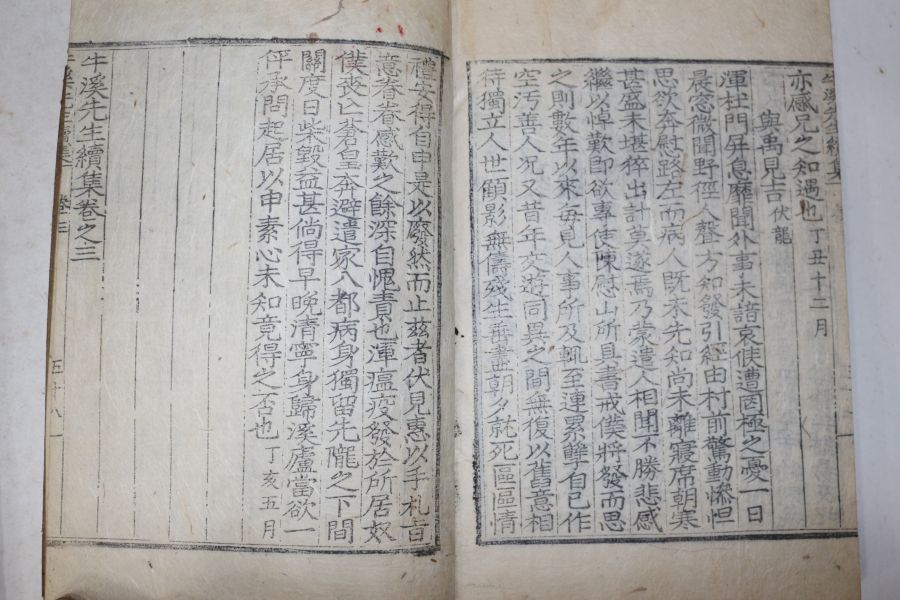 亦感兄之知遇也丁丑十二月
與禹見吉伏龍
渾杜門屛息靡聞外事未諳哀侍遭罔極之憂一日
晨窓微聞野徑人聲方知發引經由村前驚動慘怛
思欲奔慰路左而病人旣未先知尚未離寢席朝寒
甚盛未堪猝出計莫遂焉乃蒙遣人相聞不勝悲感
繼以悼歎卽欲專使陳慰山所具書戒僕將發而思
之則數年以來每見人事所及輒至連累孼自己作
空汚善人况又昔年交遊同異之間無復以舊意相
待獨立人世顧影無儔殘生垂盡朝夕就死區區情
禮安得自申是以廢然而止玆者伏見惠以手札言
意眷眷感歎之餘深自愧責也渾瘟疫發於所居奴
僕喪亡蒼皇奔避遣家入都病身獨留先隴之下間
關度日柴毁益甚倘得早晩淸寧身歸溪廬當欲一
伻承問起居以申素心未知竟得之否也丁亥五月
牛溪先生續集卷之三
卷三
五十八